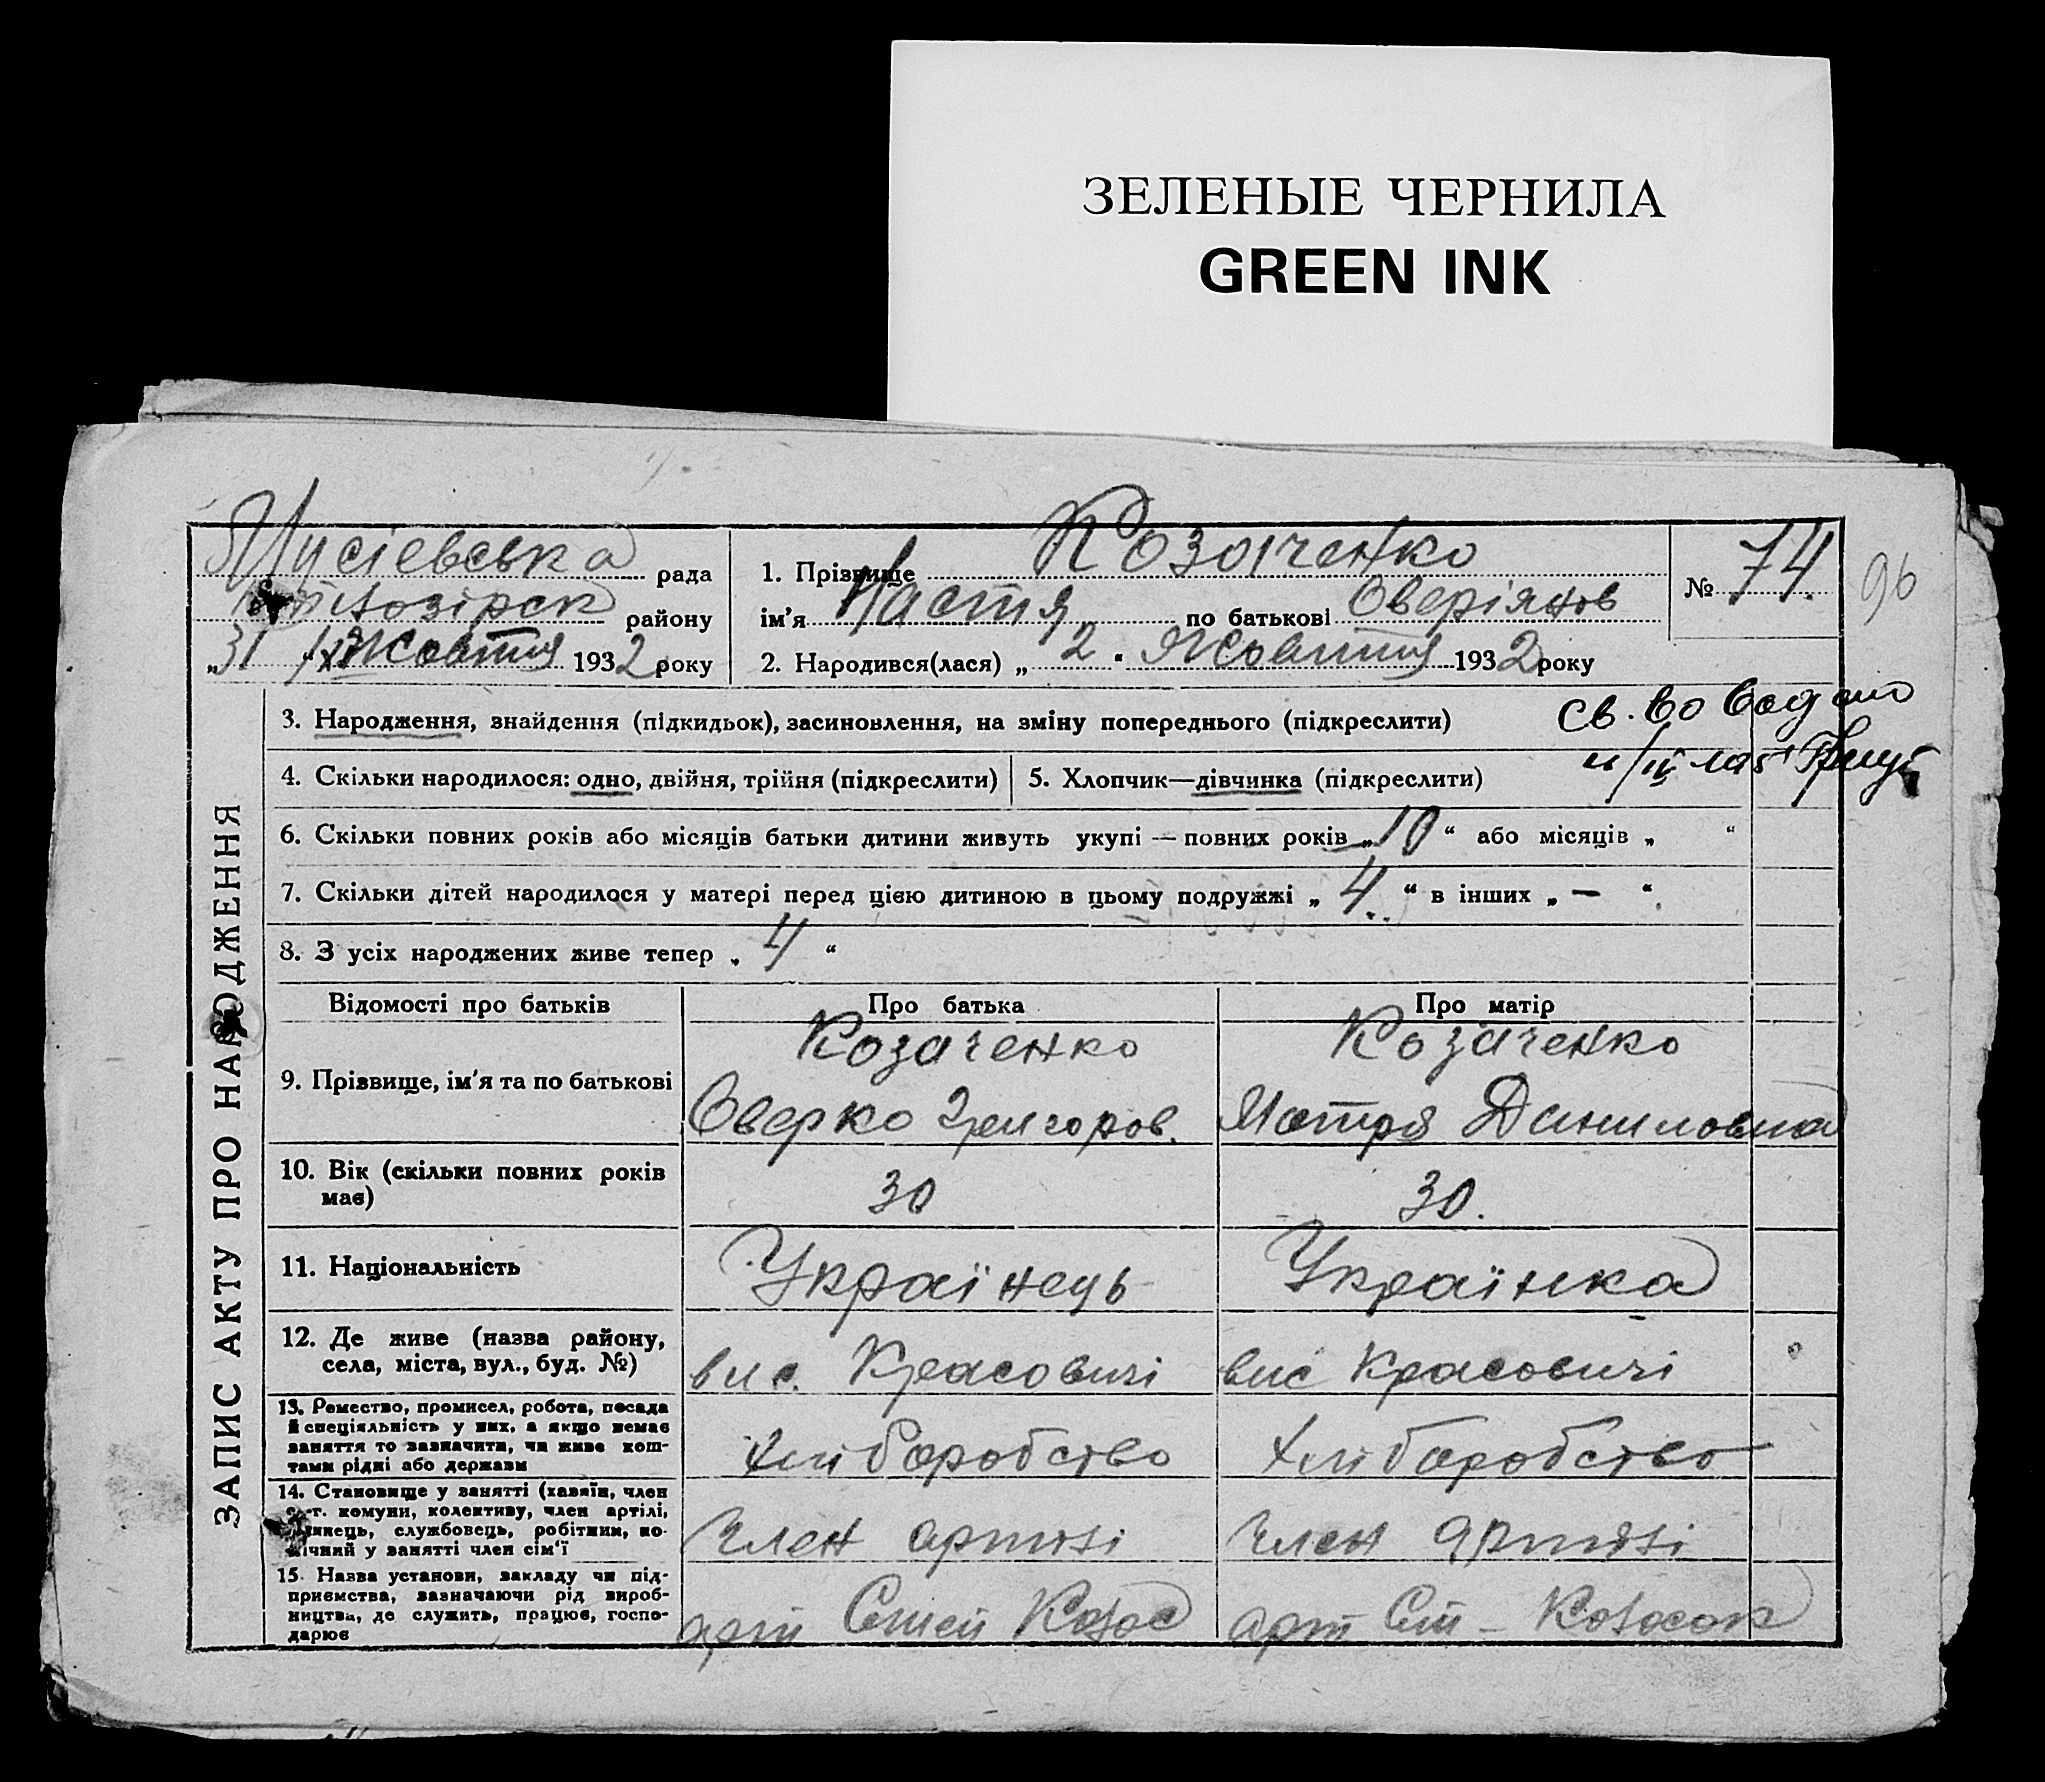 ЗЕЛЕНЫЕ ЧЕРНИЛА
GREEN INK
96
Мусіевська рада
району
„31 Жовтня 1932 року
1. Прізвище Козаченко
ім'я Настя по батькові Оверіянов
2. Народився(лася) „2“ Жовтня 1932 року
№ 74.
ЗАПИС АКТУ ПРО НАРОДЖЕННЯ
3. Народження, знайдення (підкидьок), засиновлення, на зміну попереднього (підкреслити)
св. во
4. Скільки народилося: одно, двійня, трійня (підкреслити)
5. Хлопчик—дівчинка (підкреслити)
6. Скільки повних років або місяців батьки дитини живуть укупі — повних років „10“ або місяців „ “
7. Скільки дітей народилося у матері перед цією дитиною в цьому подружжі „4“ в інших „—“.
8. З усіх народжених живе тепер „4“
Відомості про батьків
Про батька
Про матір
9. Прізвище, ім'я та по батькові
Козаченко
Оверко Григоров.
Козаченко
Мотря Даниловна
10. Вік (скільки повних років
має)
30
30.
11. Національність
Українець
Українка
12. Де живе (назва району,
села, міста, вул., буд. №)
вис. Красовичі
вис Красовичі
13. Ремество, промисел, робота, посада
й спеціяльність у них, а якщо немає
заняття то зазначити, чи живе кош-
тами рідні або держави
Хліборобство
Хліборобство
14. Становище у занятті (хазяїн, член
с.-г. комуни, колективу, член артілі,
службовець, робітник, по-
мічний у занятті член сім'ї
Член артілі
Член артілі
15. Назва установи, закладу чи під-
приємства, зазначаючи рід вироб-
ництва, де служить, працює, госпо-
дарює
арт
арт